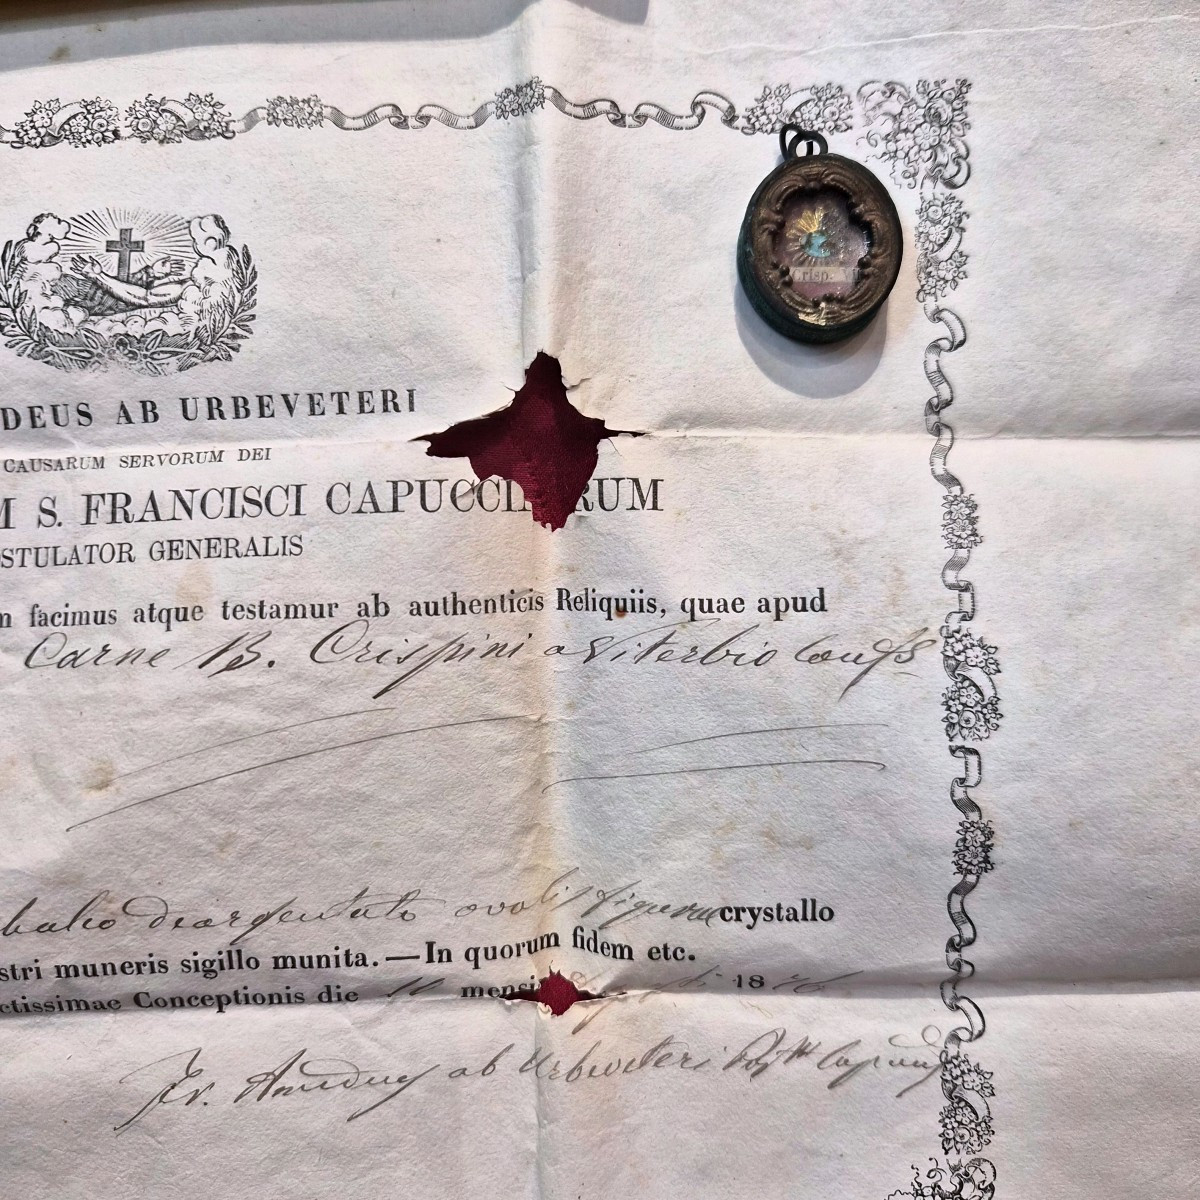 Crisp. Vit
DEUS AB URBEVETERI
CAUSARUM SERVORUM DEI
M S. FRANCISCI CAPUCCI RUM
STULATOR GENERALIS
m facimus atque testamur ab authenticis Reliquiis, quae apud
Carne B. Crispini a Viterbio Conf
deargentato ovalis figurae crystallo
stri muneris sigillo munita. — In quorum fidem etc.
ctissimae Conceptionis die mensi 18
Fr. Amadeus ab Urbeveteri